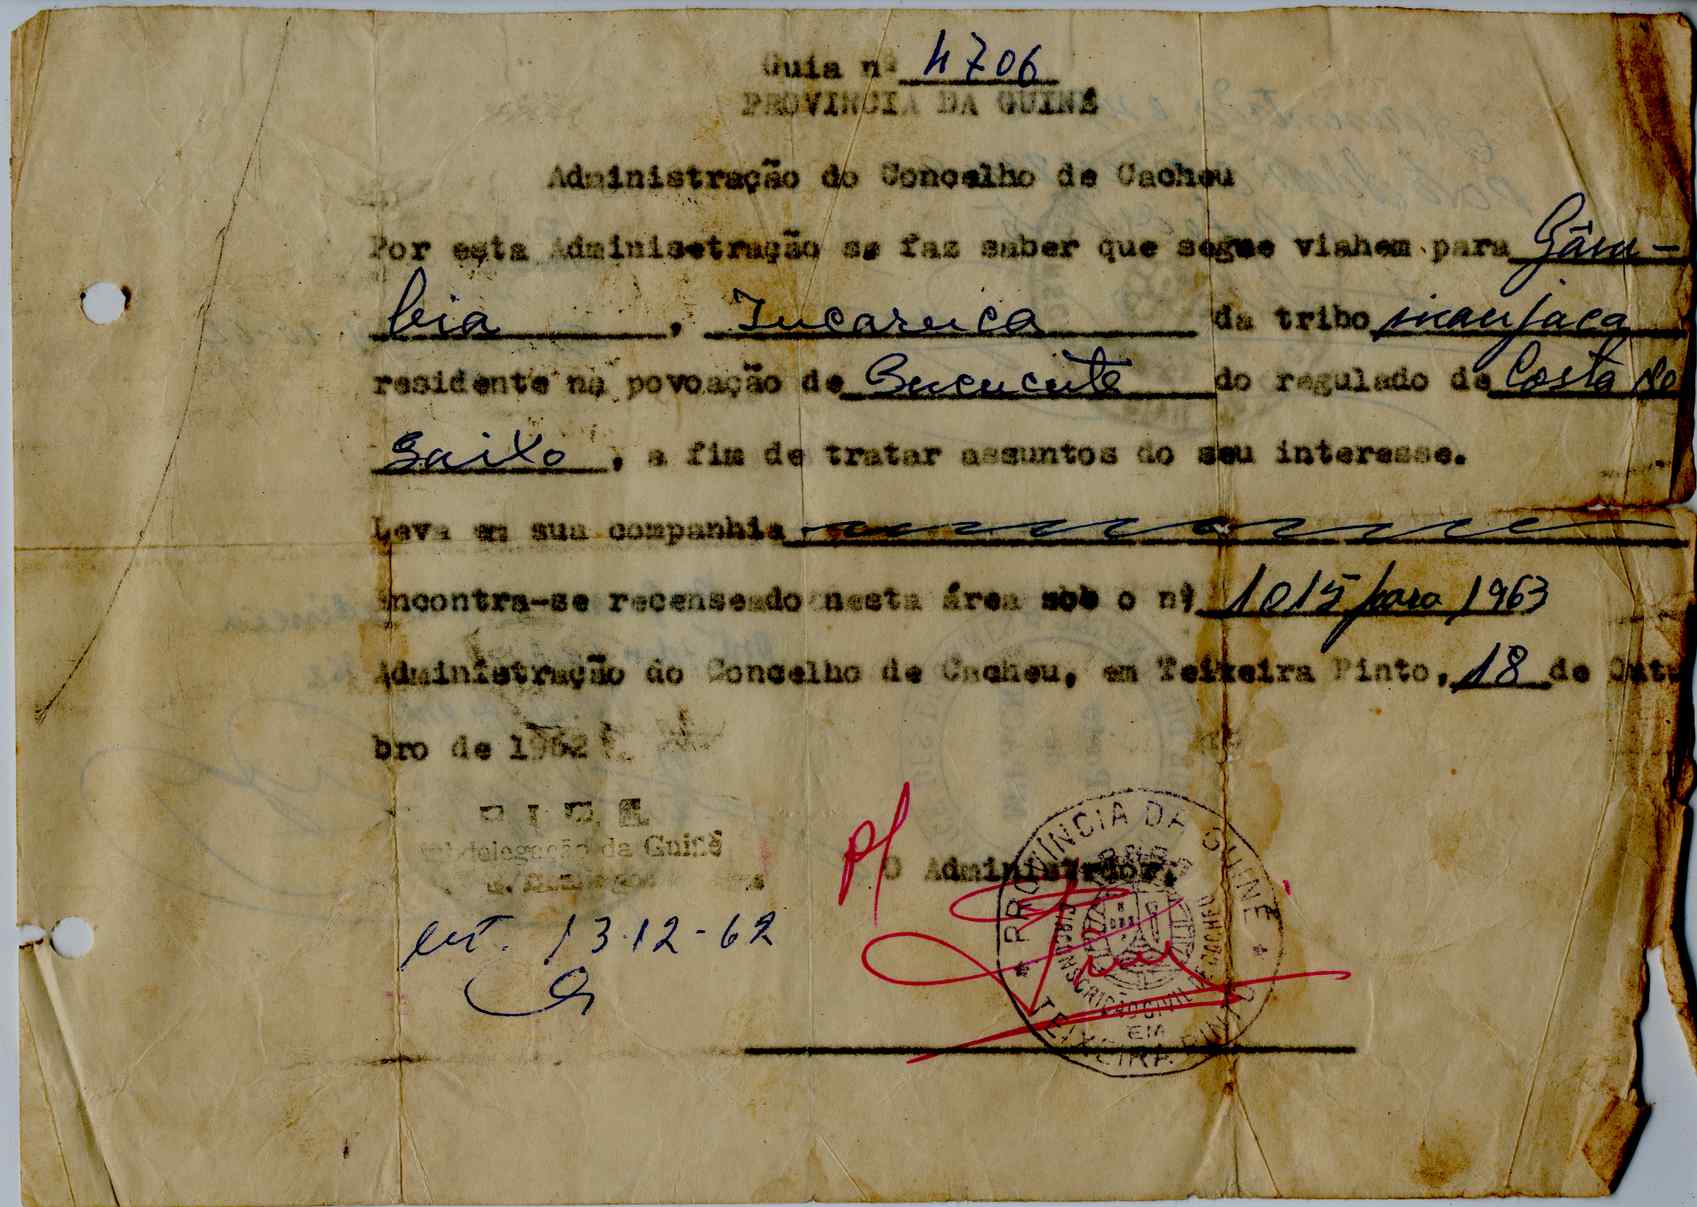 Guia nº 4706
PROVINCIA DA GUINÉ
Administração do Concelho de Cacheu
Por esta Adminisetração se faz saber que segue viahem para Gâm-
bia, Jucaruca da tribo manjaca
residente na povoação de Bucucute do regulado de Costa de
Baixo, a fim de tratar assuntos do seu interesse.
Leva em sua companhia
Encontra-se recenseado nesta área sob o nº 1015 para 1963
Administração do Concelho de Cacheu, em Teixeira Pinto, 18 de Outu
bro de 1962
P. I. D. E.
Subdelegação da Guiné
13-12-62
P/ O Administrador,
PROVINCIA DA GUINÉ
CIRCUNSCRIÇÃO CIVIL DE CACHEU
EM
TEIXEIRA PINTO